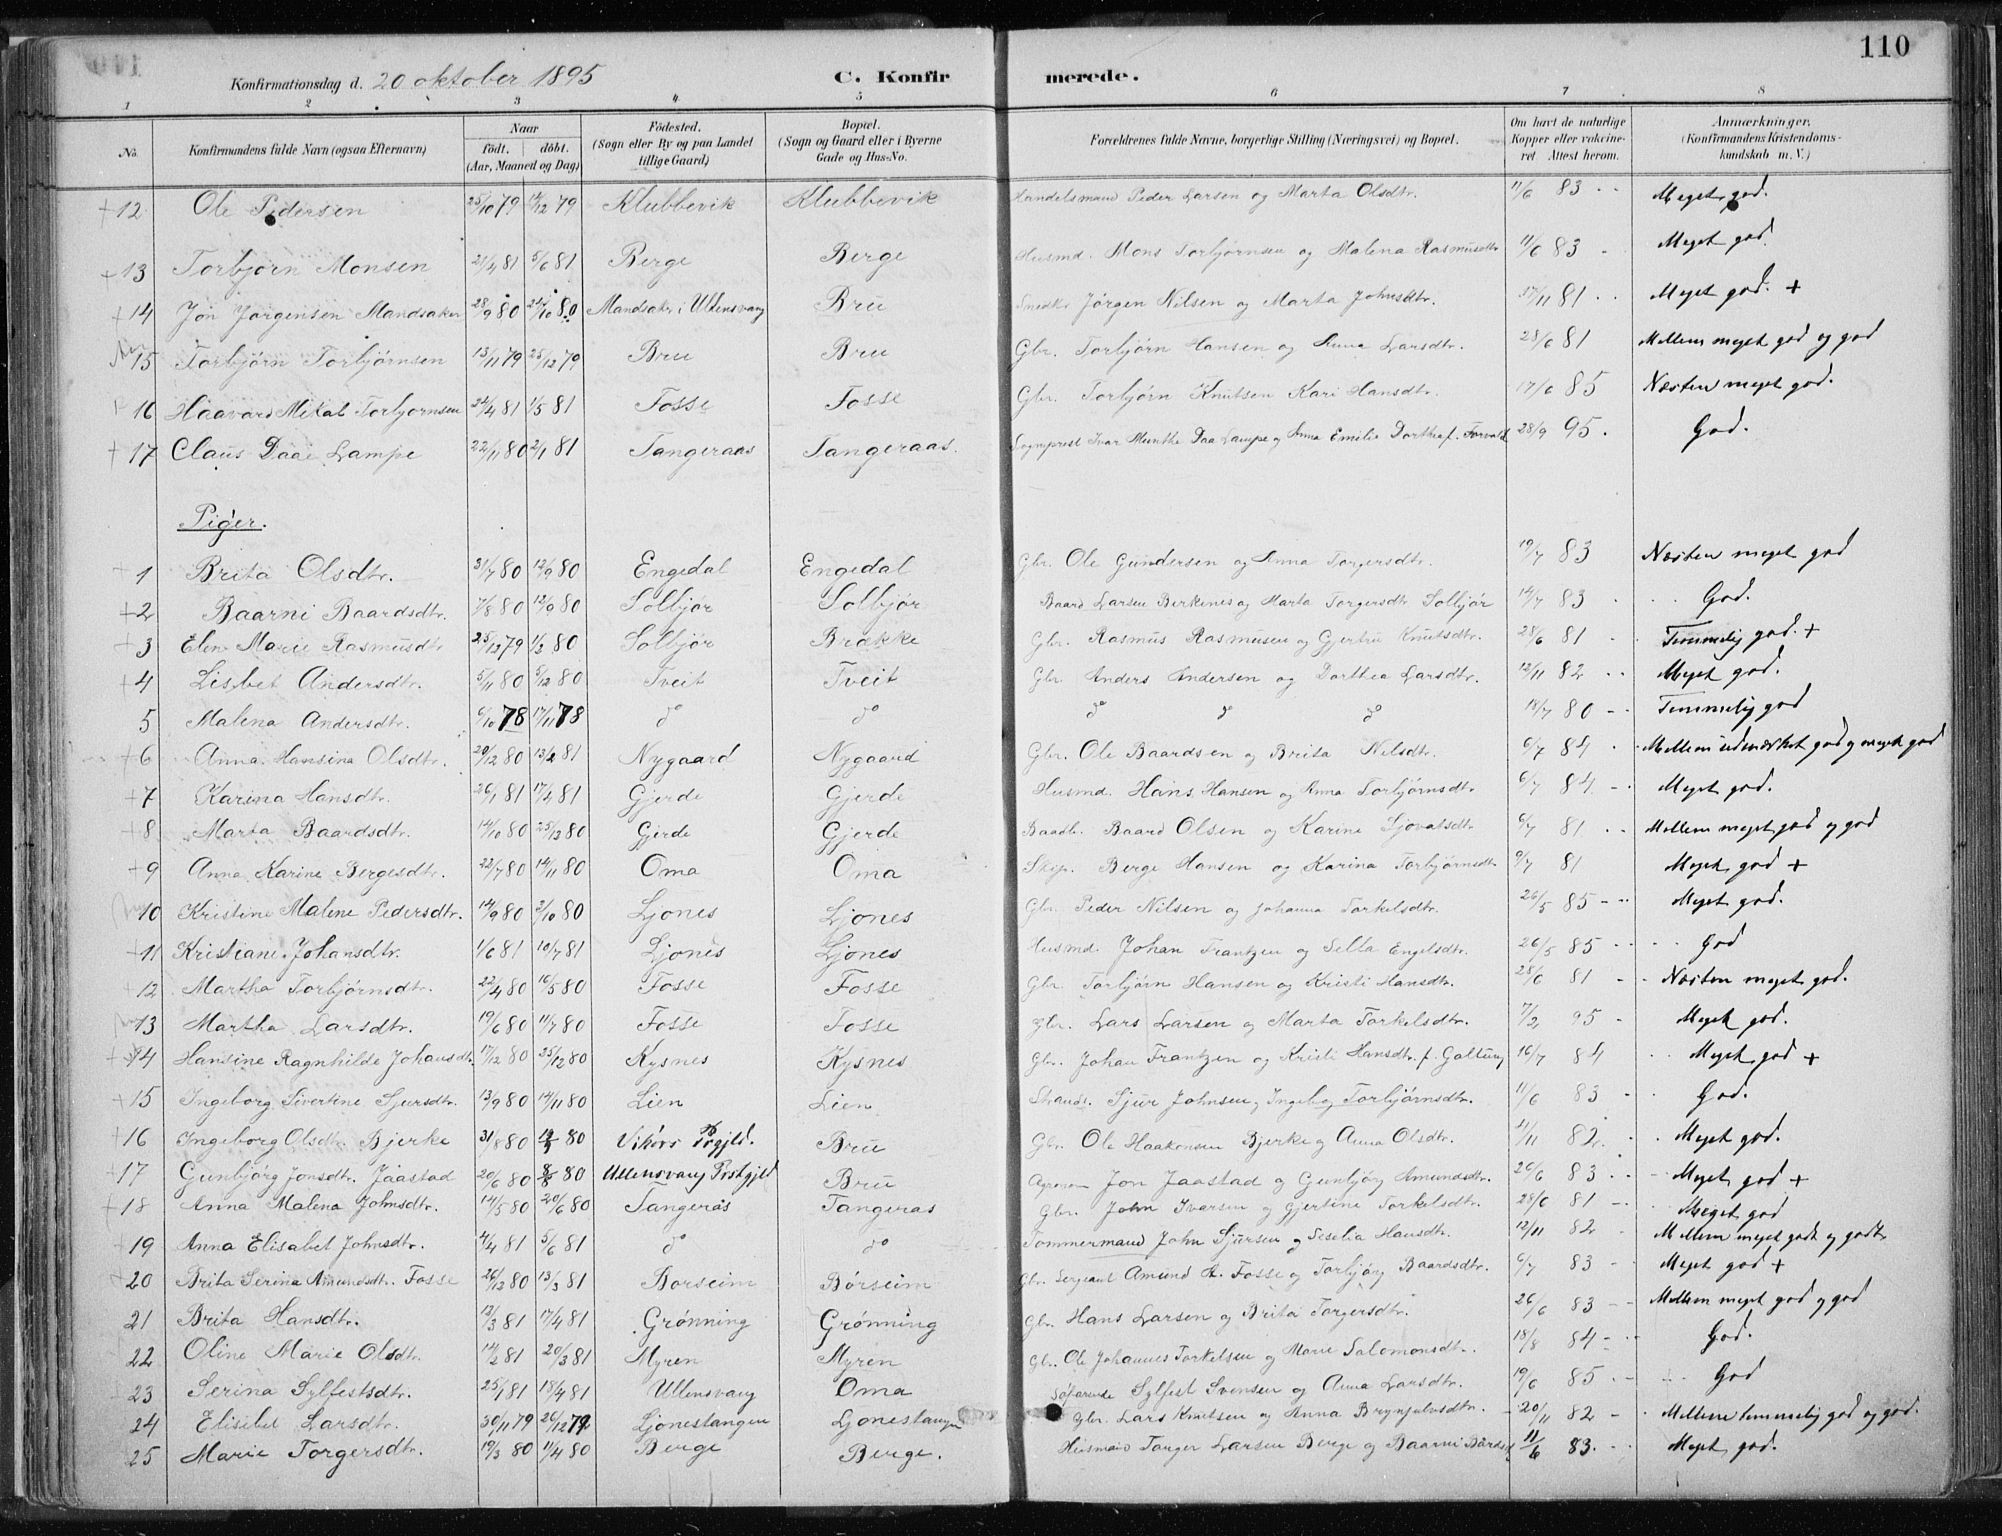 110
Konfirmationsdag d. 20 oktober 1895 C. Konfirmerede.
1 2 3 4 5 6 7 8
No. Konfirmandens fulde Navn (ogsaa Efternavn) Naar födt. döbt. (Aar, Maaned og Dag) Födested. (Sogn eller By og paa Landet tillige Gaard) Bopæl. (Sogn og Gaard eller i Byerne Gade og Hus-No. Forældrenes fulde Navne, borgerlige Stilling (Næringsvei) og Bopæl. Om havt de naturlige Kopper eller vakcineret. Attest herom. Anmærkninger. (Konfirmandens Kristendomskundskab m. V.)
+ 12 Ole Pedersen 25/10 79 14/12 79 Klubbevik Klubbevik Handelsmand Peder Larsen og Marta Olsdtr. 11/6 83 Meget god.
+ 13 Torbjørn Monsen 21/4 81 5/6 81 Berge Berge Husmd. Mons Torbjørnsen og Malena Rasmusdtr 11/6 83 Meget god.
+ 14 Jon Jørgensen Mandsaker 28/9 80 24/10 80 Mandsaker i Ullensvang Bru Jørgen Nilsen og Marta Johnsdtr. 17/11 81 Meget god. +
15 Torbjörn Torbjörnsen 13/11 79 25/12 79 Bru Bru Gbr. Torbjörn Hansen og Anna Larsdtr. 28/6 81 Mellem meget god og god
16 Haavard Mikal Torbjørnsen 24/4 81 1/5 81 Fosse Fosse Gbr. Torbjørn Knutsen Kari Hansdtr. 17/6 85 Næsten meget god.
+ 17 Claus Daae Lampe 22/11 80 2/1 81 Tangeraas Tangeraas. Sognprest Ivar Munthe Daa Lampe og Anna Emilie Dorthea f. 28/9 95. God.
Piger.
1 Brita Olsdtr. 31/7 80 12/9 80 Engedal Engedal Gbr. Ole Gundersen og Anna Torgersdtr. 19/7 83 Næsten meget god
+ 2 Baarni Baardsdtr. 7/8 80 12/9 80 Solbjør Solbjør Baard Larsen Berkenes og Marta Torgersdtr Solbjør 14/7 83 God.
+ 3 Elen Marie Rasmusdtr 25/12 79 1/2 80 Solbjør Brække Gbr. Rasmus Rasmusen og Gjertru Knutsdtr. 28/6 81 Temmelig god. +
+ 4 Lisbet Andersdtr. 5/11 80 5/12 80 Tveit Tveit Gbr Anders Andersen og Dorthea Larsdtr. 12/11 82 Meget god.
5 Malena Andersdtr. 6/10 78 17/11 78 do do do do do 18/7 80 Temmelig god
+ 6 Anna Hansina Olsdtr. 20/12 80 13/2 81 Nygaard Nygaard Gbr. Ole Baardsen og Brita Nilsdtr. 6/7 84 Mellem udmærket god og meget god
+ 7 Karina Hansdtr. 26/1 81 17/4 81 Gjerde Gjerde Husmd. Hans Hansen og Anna Torbjörnsdtr 6/7 84 Meget god.
+ 8 Marta Baardsdtr. 14/10 80 25/12 80 Gjerde Gjerde Baadb. Baard Olsen og Karine Sjovatsdtr 6/7 81 Mellem meget god og god
+ 9 Anna Karine Bergesdtr. 22/7 80 14/11 80 Oma Oma Skip. Berge Hansen og Karina Torbjørnsdtr 9/7 81 Meget god +
10 Kristine Malene Pedersdtr. 14/9 80 3/10 80 Ljones Ljones Gbr. Peder Nilsen og Johanna Torkelsdtr. 26/5 85 Meget god.
+ 11 Kristiane Johansdtr. 1/6 81 10/7 81 Ljones Ljones Husmd. Johan Frantzen og Sella Engelsdtr. 26/5 85 God
+ 12 Martha Torbjörnsdtr. 22/4 80 16/5 80 Fosse Fosse Gbr Torbjörn Hansen og Kristi Hansdtr. 28/6 81 Næsten meget god.
13 Martha Larsdtr. 19/6 80 11/7 80 Fosse Fosse Gbr. Lars Larsen og Marta Torkelsdtr. 7/2 95 Meget god.
+ 14 Hansine Ragnhilde Johansdtr. 17/12 80 25/12 80 Kysnes Kysnes Gbr. Johan Frantzen og Kristi Hansdtr. f. Galtung 16/7 84 Meget god +
+ 15 Ingeborg Sivertine Sjursdtr. 13/9 80 14/11 80 Lien Lien Strands. Sjur Johnsen og Ingebog Torbjørnsdtr. 11/6 83 God.
+ 16 Ingeborg Olsdtr. Bjerke 31/8 80 80 Vikörs Prgjld. Bru Gbr. Ole Haakonsen Bjerke og Anna Olsdtr. 11/11 82. Meget god.
+ 17 Gunbjörg Jonsdtr. Jaastad 20/6 80 8/8 80 Ullensvang Prstgjld Bru Jon Jaastad og Gunbjög Amundsdtr. 26/6 83 Meget god +
+ 18 Anna Malena Johnsdtr. 14/5 80 20/6 80 Tangerås Tangeras Gbr. John Ivarsen og Gjertine Torkelsdtr. 28/6 81 Meget god
+ 19 Anna Elisabet Johnsdtr. 4/4 81 5/6 81 do do Tømmermand John Sjursen og Seselia Hansdtr. 12/11 82 Mellem meget godt og godt
+ 20 Brita Serina Amundsdtr. Fosse 26/12 80 13/3 81 Börseim Börseim Gbr. Sergeant Amund A. Fosse og Torbjög Baardsdtr. 6/7 83 Meget god +
21 Brita Hansdtr. 13/3 81 17/4 81 Grønning Grønning Gbr. Hans Larsen og Brita Torgersdtr. 26/6 83 Mellem meget god og god
22 Oline Marie Olsdtr. 14/2 81 20/3 81 Myren Myren Gbr. Ole Johannes Torkelsen og Marie Salomonsdtr. 18/8 84 God.
23 Serina Sylfestsdtr. 25/1 81 18/4 81 Ullensvang Oma Søfarende Sylfest Svensen og Anna Larsdtr. 19/6 85 God
24 Elisebet Larsdtr. 30/11 79 26/12 79 Ljonestangen Ljonestangen Gbr. Lars Knutsen og Anna Brynjulvsdtr. 20/11 82 Mellem temmelig god og god.
25 Marie Torgersdtr. 19/3 80 11/4 80 Berge Berge. Husmand Torger Larsen Berge og Baarni Bårdsd. 11/6 83. Meget god.